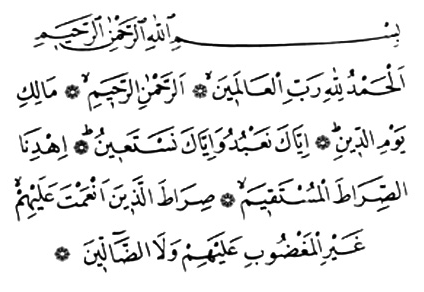 بِسْمِ اللّٰهِ الرَّحْمٰنِ الرَّحِيمِ
اَلْحَمْدُ لِلّٰهِ رَبِّ الْعَالَمِينَۙ ۞ اَلرَّحْمٰنِ الرَّحِيمِۙ ۞ مَالِكِ
يَوْمِ الدِّينِۜ ۞ اِيَّاكَ نَعْبُدُ وَاِيَّاكَ نَسْتَعِينُۜ ۞ اِهْدِنَا
الصِّرَاطَ الْمُسْتَقِيمَۙ ۞ صِرَاطَ الَّذِينَ اَنْعَمْتَ عَلَيْهِمْۙ
غَيْرِ الْمَغْضُوبِ عَلَيْهِمْ وَلَا الضَّٓالِّينَ ۞